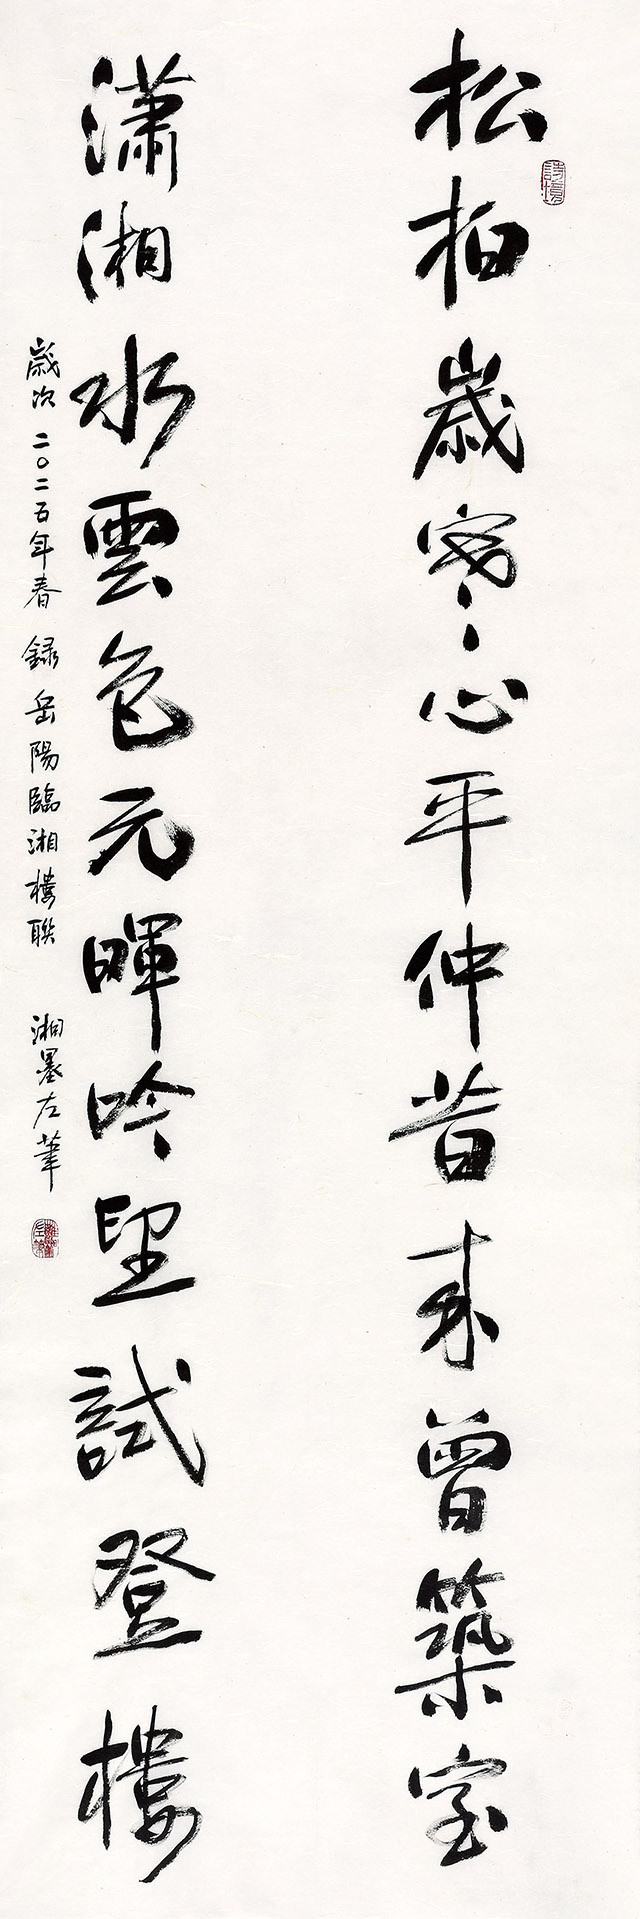 松柏歲寒心平仲昔来曾築室
瀟湘水雲色元暉吟望試登樓
歲次二〇二五年春録岳陽臨湘樓聯
湘墨左筆
詩境